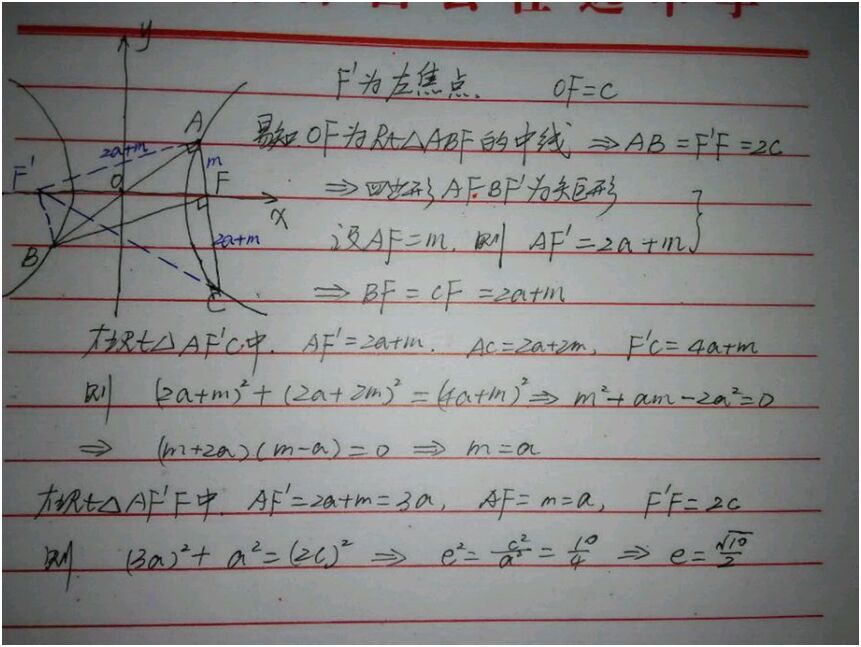 F'为左焦点. OF=c
易知 OF为Rt△ABF的中线 ⇒ AB=F'F=2c
⇒ 四边形AFBF'为矩形
设AF=m, 则 AF'=2a+m
⇒ BF=CF=2a+m
在Rt△AF'C中. AF'=2a+m. AC=2a+2m, F'C=4a+m
则 (2a+m)²+(2a+2m)²=(4a+m)² ⇒ m²+am-2a²=0
⇒ (m+2a)(m-a)=0 ⇒ m=a
在Rt△AF'F中. AF'=2a+m=3a, AF=m=a, F'F=2c
则 (3a)²+a²=(2c)² ⇒ e²=c²/a²=10/4 ⇒ e=√10/2
y
A
2a+m
m
F'
O
F
x
B
2a+m
C